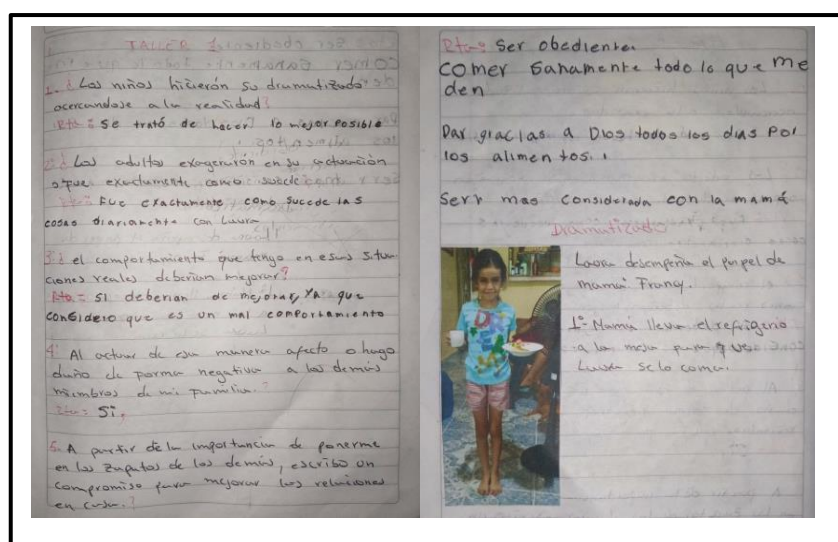 TALLER
1. ¿Los niños hicierón su dramatizado
acercandose a la realidad?
Rta = Se trató de hacer lo mejor posible
2. ¿Los adultos exagerarón en su actuación
o fue exactamente como sucede
Rta = Fue exactamente como sucede las
cosas diariamente con Laura
3. ¿el comportamiento que tengo en esas situa
ciones reales deberian mejorar?
Rta = SI deberian de mejorar, ya que
considero que es un mal comportamiento
4. Al actuar de esa manera afecto o hago
daño de forma negativa a los demás
miembros de mi familia.?
Rta = Si.
5. A partir de la importancia de ponerme
en los zapatos de los demás, escribo un
compromiso para mejorar las relaciones
en casa.?
Rta = Ser obediente.
comer sanamente todo lo que me
den
Dar gracias a Dios todos los dias Por
los alimentos.
Serr mas considerada con la mamá
Dramatizado
Laura desempeña el papel de
mamá Francy.
1º- Mamá lleva el refrigerio
a la mesa para que
Laura se lo coma.